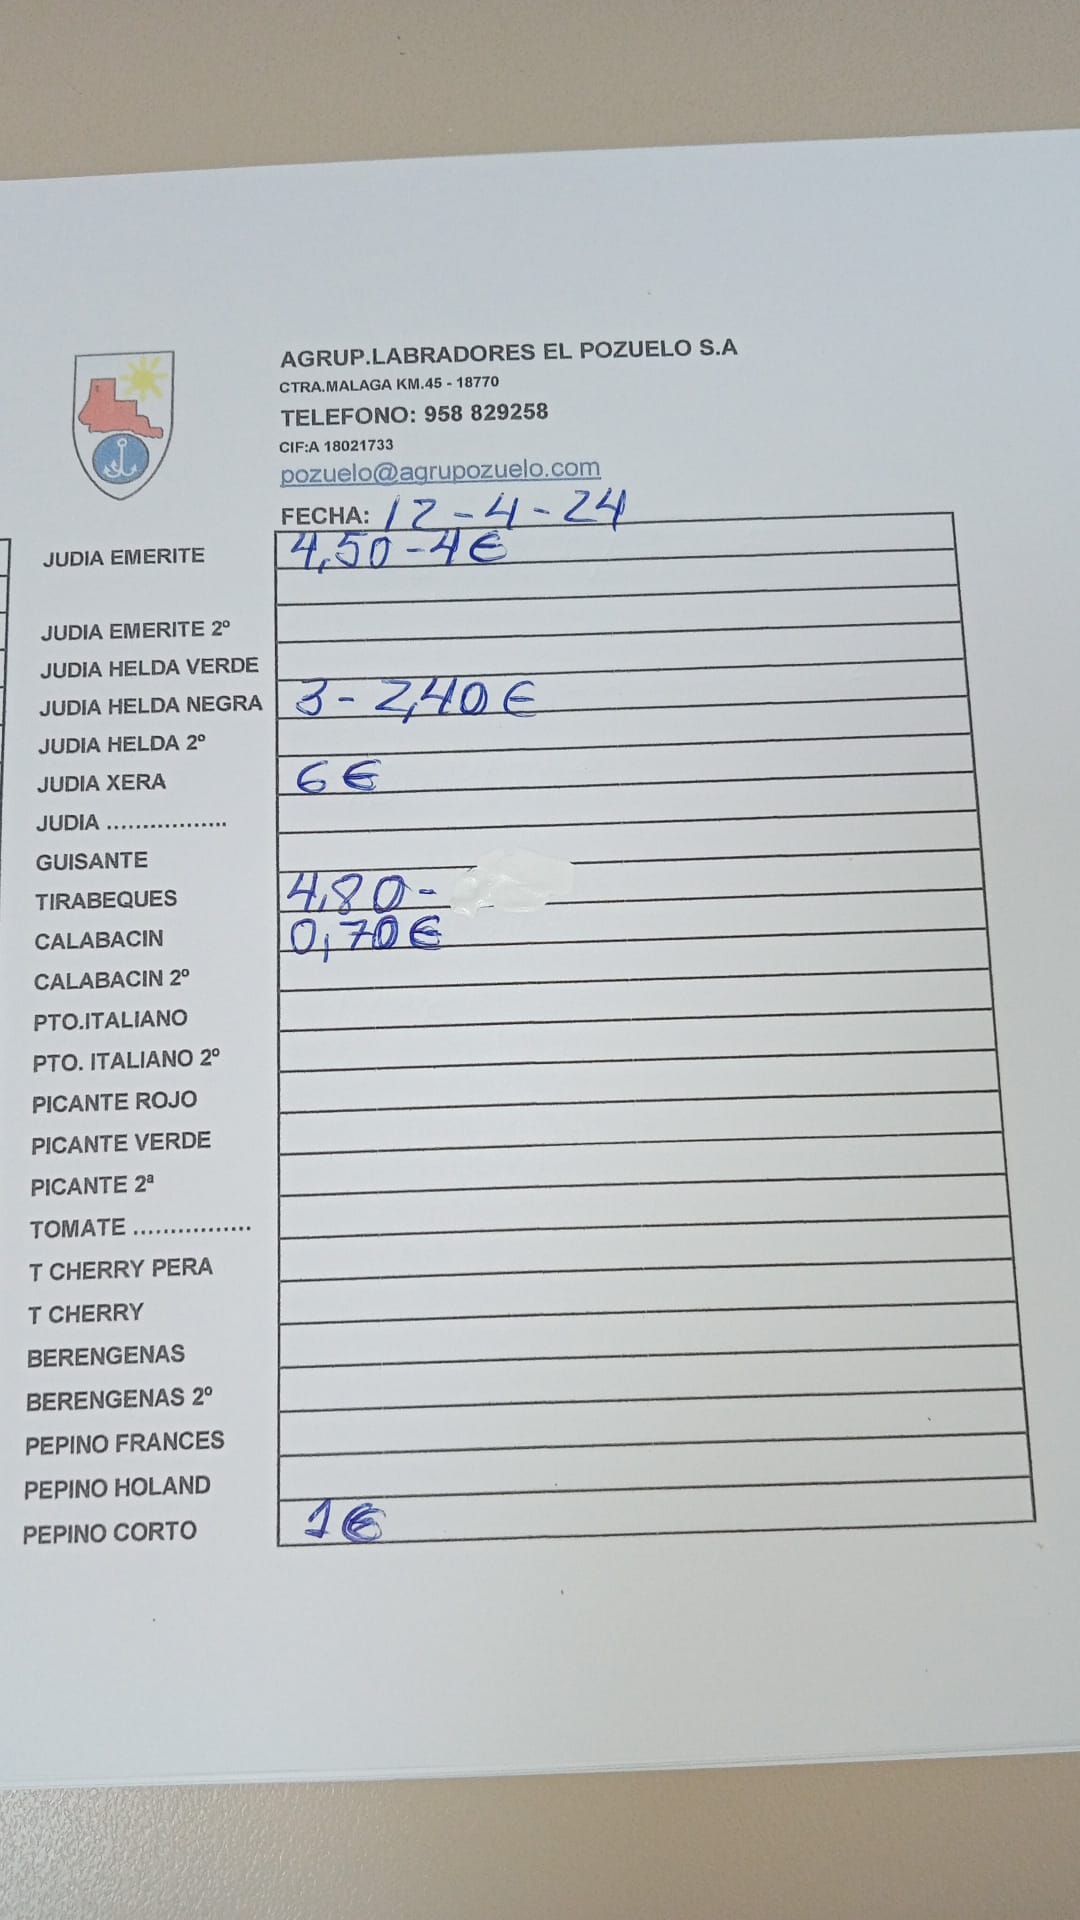 AGRUP.LABRADORES EL POZUELO S.A
CTRA.MALAGA KM.45 - 18770
TELEFONO: 958 829258
CIF:A 18021733
pozuelo@agrupozuelo.com
FECHA: 12-4-24
JUDIA EMERITE 4,50-4€
JUDIA EMERITE 2º
JUDIA HELDA VERDE
JUDIA HELDA NEGRA 3-2,40€
JUDIA HELDA 2º
JUDIA XERA 6€
JUDIA .................
GUISANTE
TIRABEQUES 4,80-
CALABACIN 0,70€
CALABACIN 2º
PTO.ITALIANO
PTO. ITALIANO 2º
PICANTE ROJO
PICANTE VERDE
PICANTE 2ª
TOMATE ................
T CHERRY PERA
T CHERRY
BERENGENAS
BERENGENAS 2º
PEPINO FRANCES
PEPINO HOLAND
PEPINO CORTO 1€